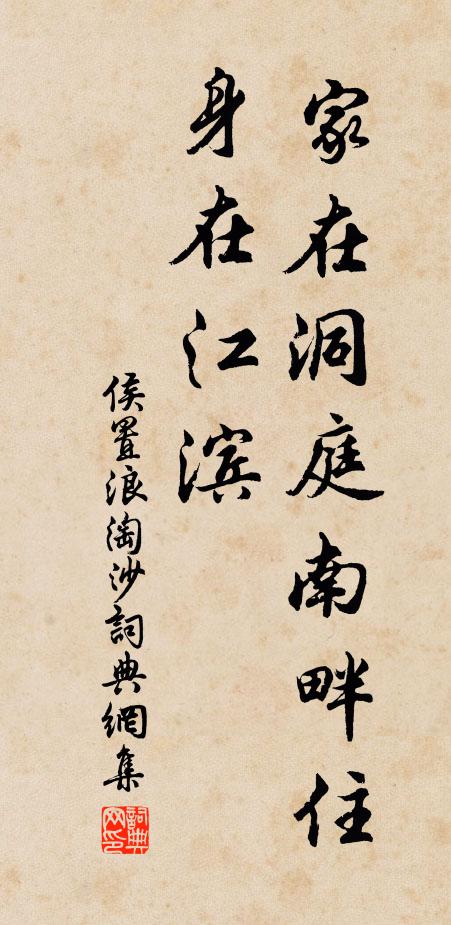 家在洞庭南畔住
身在江滨
侯置浪淘沙詞典網集
詞典网印